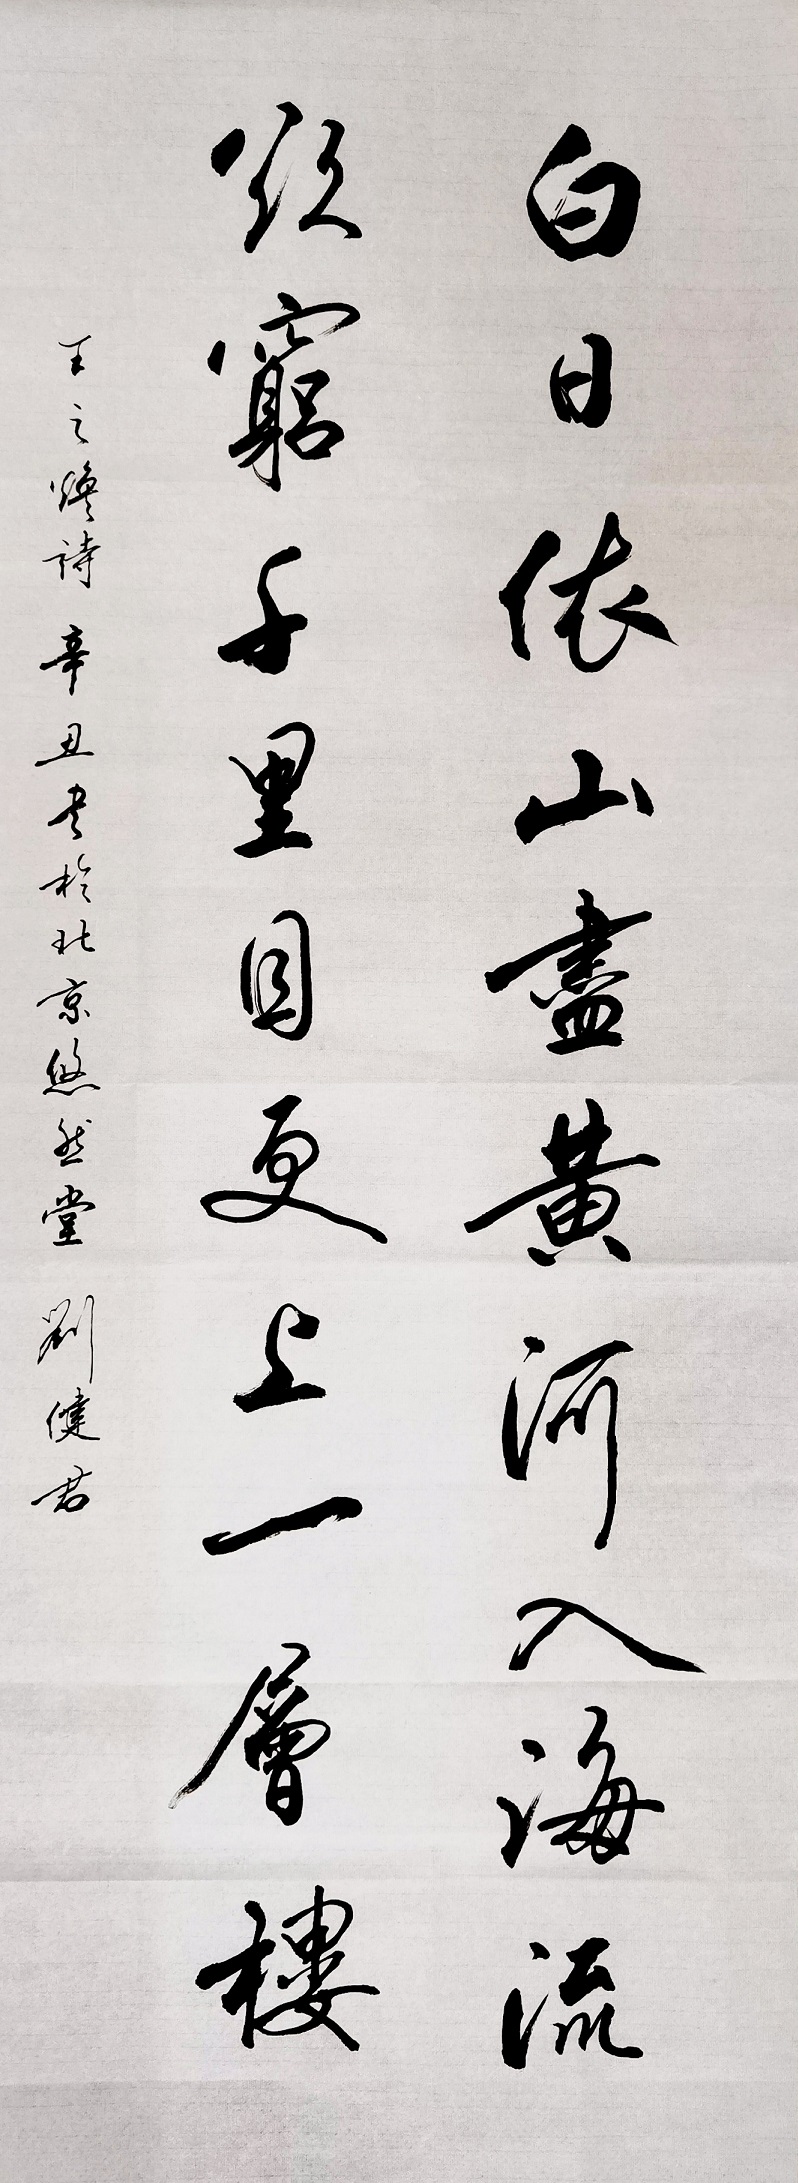 白日依山盡黃河入海流
欲窮千里目更上一層樓
王之煥詩 辛丑書於北京悠然堂 劉健君